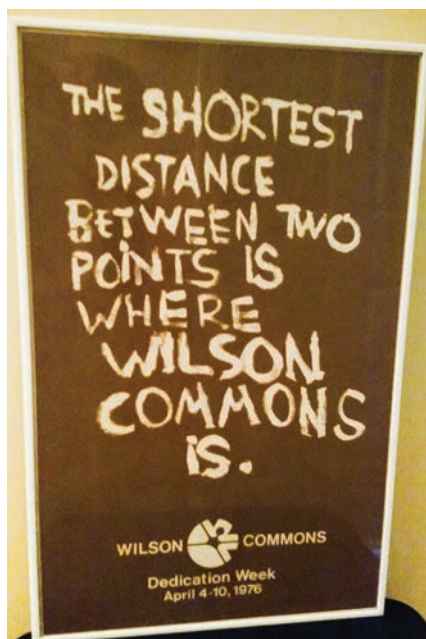 THE SHORTEST
DISTANCE
BETWEEN TWO
POINTS IS
WHERE
WILSON
COMMONS
iS.
WILSON COMMONS
Dedication Week
April 4-10, 1976